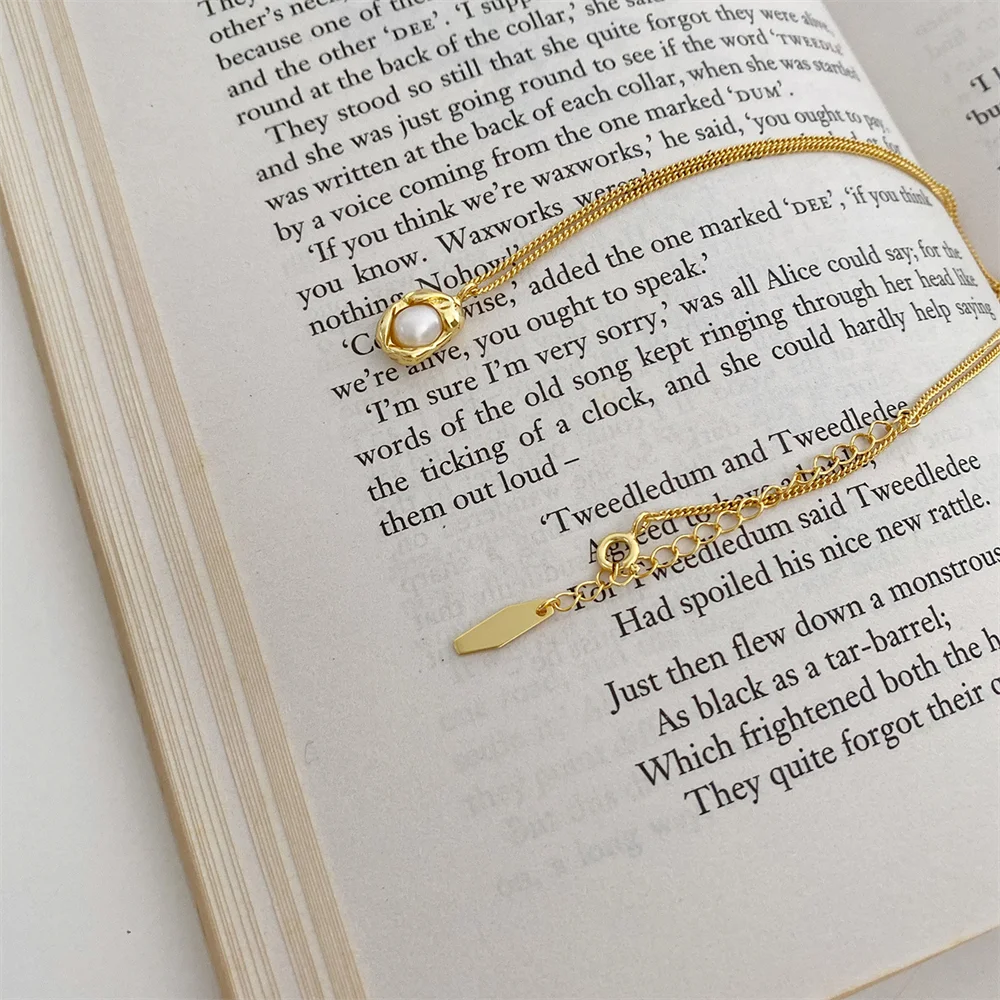 They
other's neck,
because one of them
and the other 'DEE'. 'I suppose
round at the back of the collar,' she said
They stood so still that she quite forgot they were alive,
and she was just going round to see if the word 'TWEEDLE'
was written at the back of each collar, when she was startled
by a voice coming from the one marked 'DUM'.
'If you think we're waxworks,' he said, 'you ought to pay,
you know. Waxworks weren't for
nothing. Nohow!'
wise,' added the one marked 'DEE', 'if you think
we're alive, you ought to speak.'
'I'm sure I'm very sorry,' was all Alice could say; for the
words of the old song kept ringing through her head like
the ticking of a clock, and she could hardly help saying
them out loud –
'Tweedledum and Tweedledee
Agreed to have a battle;
For Tweedledum said Tweedledee
Had spoiled his nice new rattle.
Just then flew down a monstrous
As black as a tar-barrel;
Which frightened both the h
They quite forgot their
'I
'bu